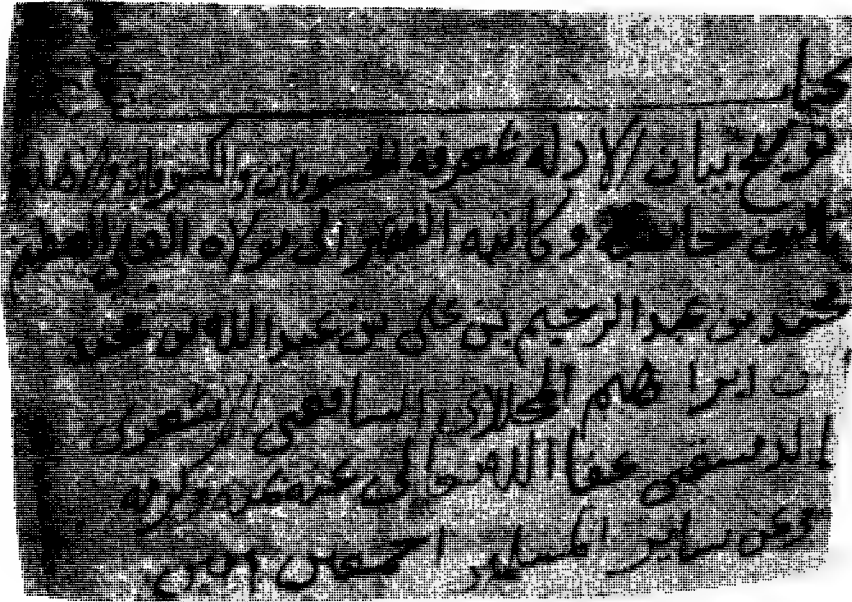 كتاب
توضيح بيان الادله لمعرفة الخسوفات والكسوفات والاهله
تاليف جامعه وكاتبه الفقير الى مولاه العلى العظيم
محمد بن عبد الرحيم بن على بن عبد الله بن محمد
بن ابراهيم الشافعى الاشعرى
الدمشقى عفا الله تعالى عنه بمنه وكرمه
وعن ساير المسلمين اجمعين امين